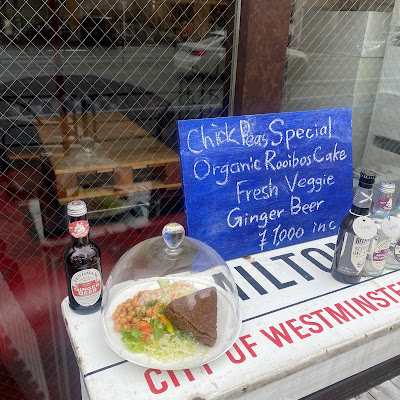 Chick Peas Special
Organic Rooibos Cake
Fresh Veggie
Ginger Beer
¥1,000 inc
GINGER
BEER
CITY OF WESTMINSTER